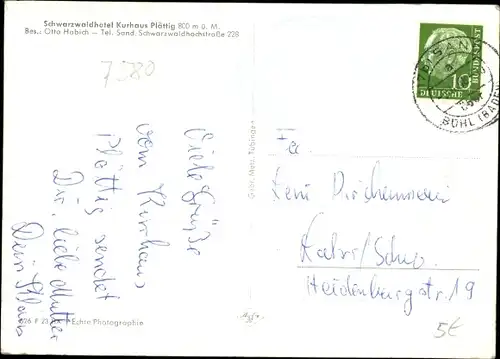 Schwarzwaldhotel Kurhaus Plättig 800 m ü. M.
Bes.: Otto Habich – Tel. Sand, Schwarzwaldhochstraße 228
7580
Viele Grüße
vom Kurhaus
Plättig sendet
Dir, liebe Mutter
Dein Klaus
Echte Photographie
Gebr. Metz, Tübingen
DEUTSCHE
BUNDESPOST
10
SAND
BÜHL (BADEN)
Fa.
Heidenburgstr. 19
5€